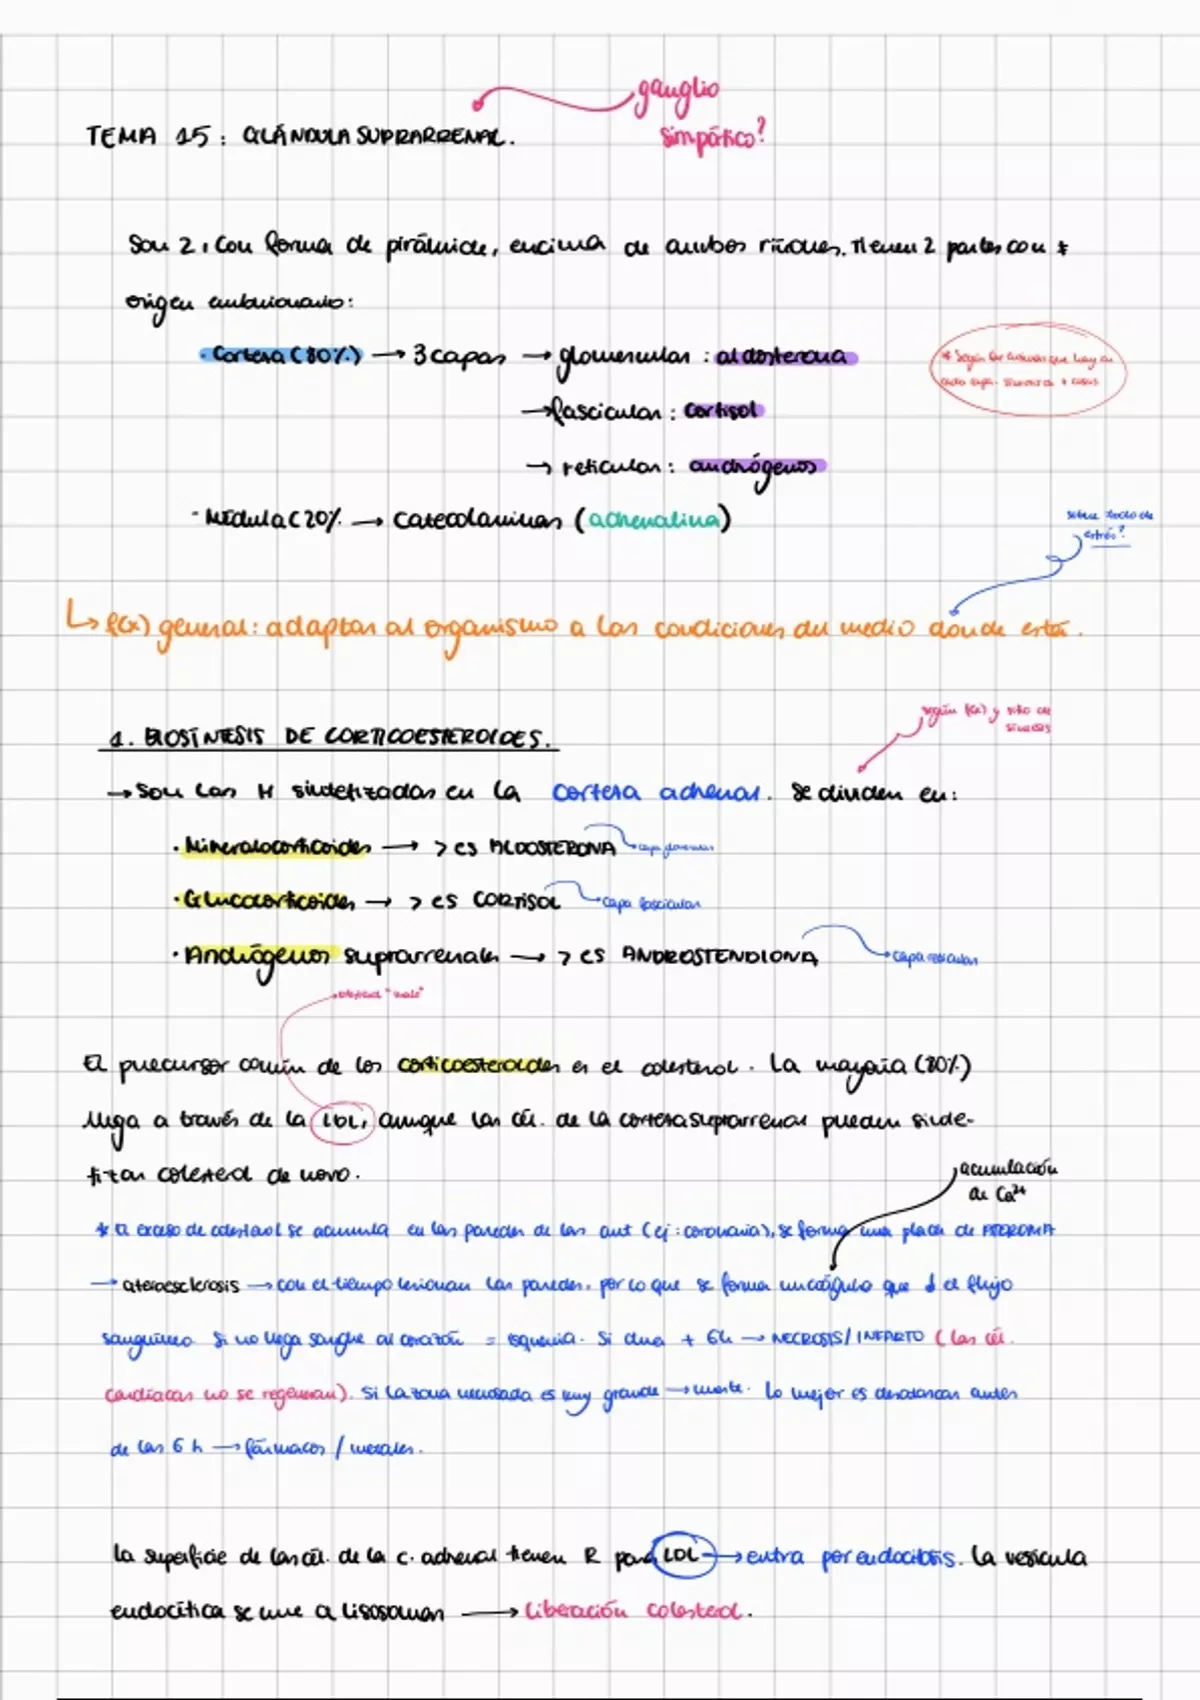 ganglio
simpático?
TEMA 15: GLÁNDULA SUPRARRENAL.
Son 2, con forma de pirámide, encima de ambos riñones. Tienen 2 partes con ≠
origen embrionario:
· Corteza (80%) → 3 capas → glomerular: aldosterona
* Según las enzimas que hay en
cada capa. Sintetiza ≠ cosas
→ fascicular: cortisol
→ reticular: andrógenos
- Médula (20% → catecolaminas (adrenalina)
sobre todo de
estrés?
↳ f(x) general: adaptar al organismo a las condiciones del medio donde está.
según f(x) y sitio de
síntesis
1. BIOSÍNTESIS DE CORTICOESTEROIDES.
→ Son las H sintetizadas en la corteza adrenal. Se dividen en:
· Mineralocorticoides → > es ALDOSTERONA capa glomerular
· Glucocorticoides → > es CORTISOL capa fascicular
· Andrógenos suprarrenales → > es ANDROSTENDIONA capa reticular
colesterol "malo"
El precursor común de los corticoesteroides es el colesterol. La mayoría (80%)
llega a través de la LDL, aunque las cél. de la corteza suprarrenal pueden sinte-
tizar colesterol de novo.
acumulación
de Ca2+
* El exceso de colesterol se acumula en las paredes de las art (ej: coronaria), se forma una placa de ATEROMA
→ ateroesclerosis → con el tiempo lesionan las paredes, por lo que se forma un coágulo que ↓ el flujo
sanguíneo. Si no llega sangre al corazón = isquemia. Si dura + 6h → NECROSIS/INFARTO (las cél.
cardíacas no se regeneran). Si la zona necrosada es muy grande → muerte. Lo mejor es desatascar antes
de las 6 h → fármacos /
La superficie de las cél. de la c. adrenal tienen R para LDL → entra por endocitosis. La vesícula
endocítica se une a lisosomas → liberación colesterol.